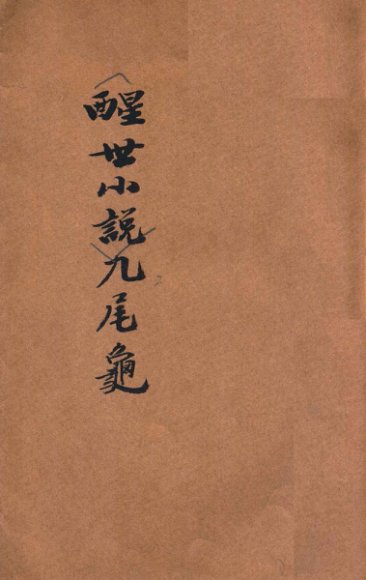 醒世小説九尾龜